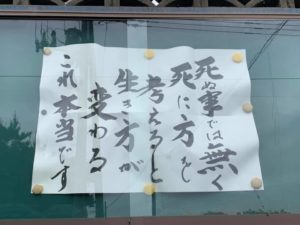 死ぬ事では無く
死に方を
考えると
生き方が
変わる
これ本当です